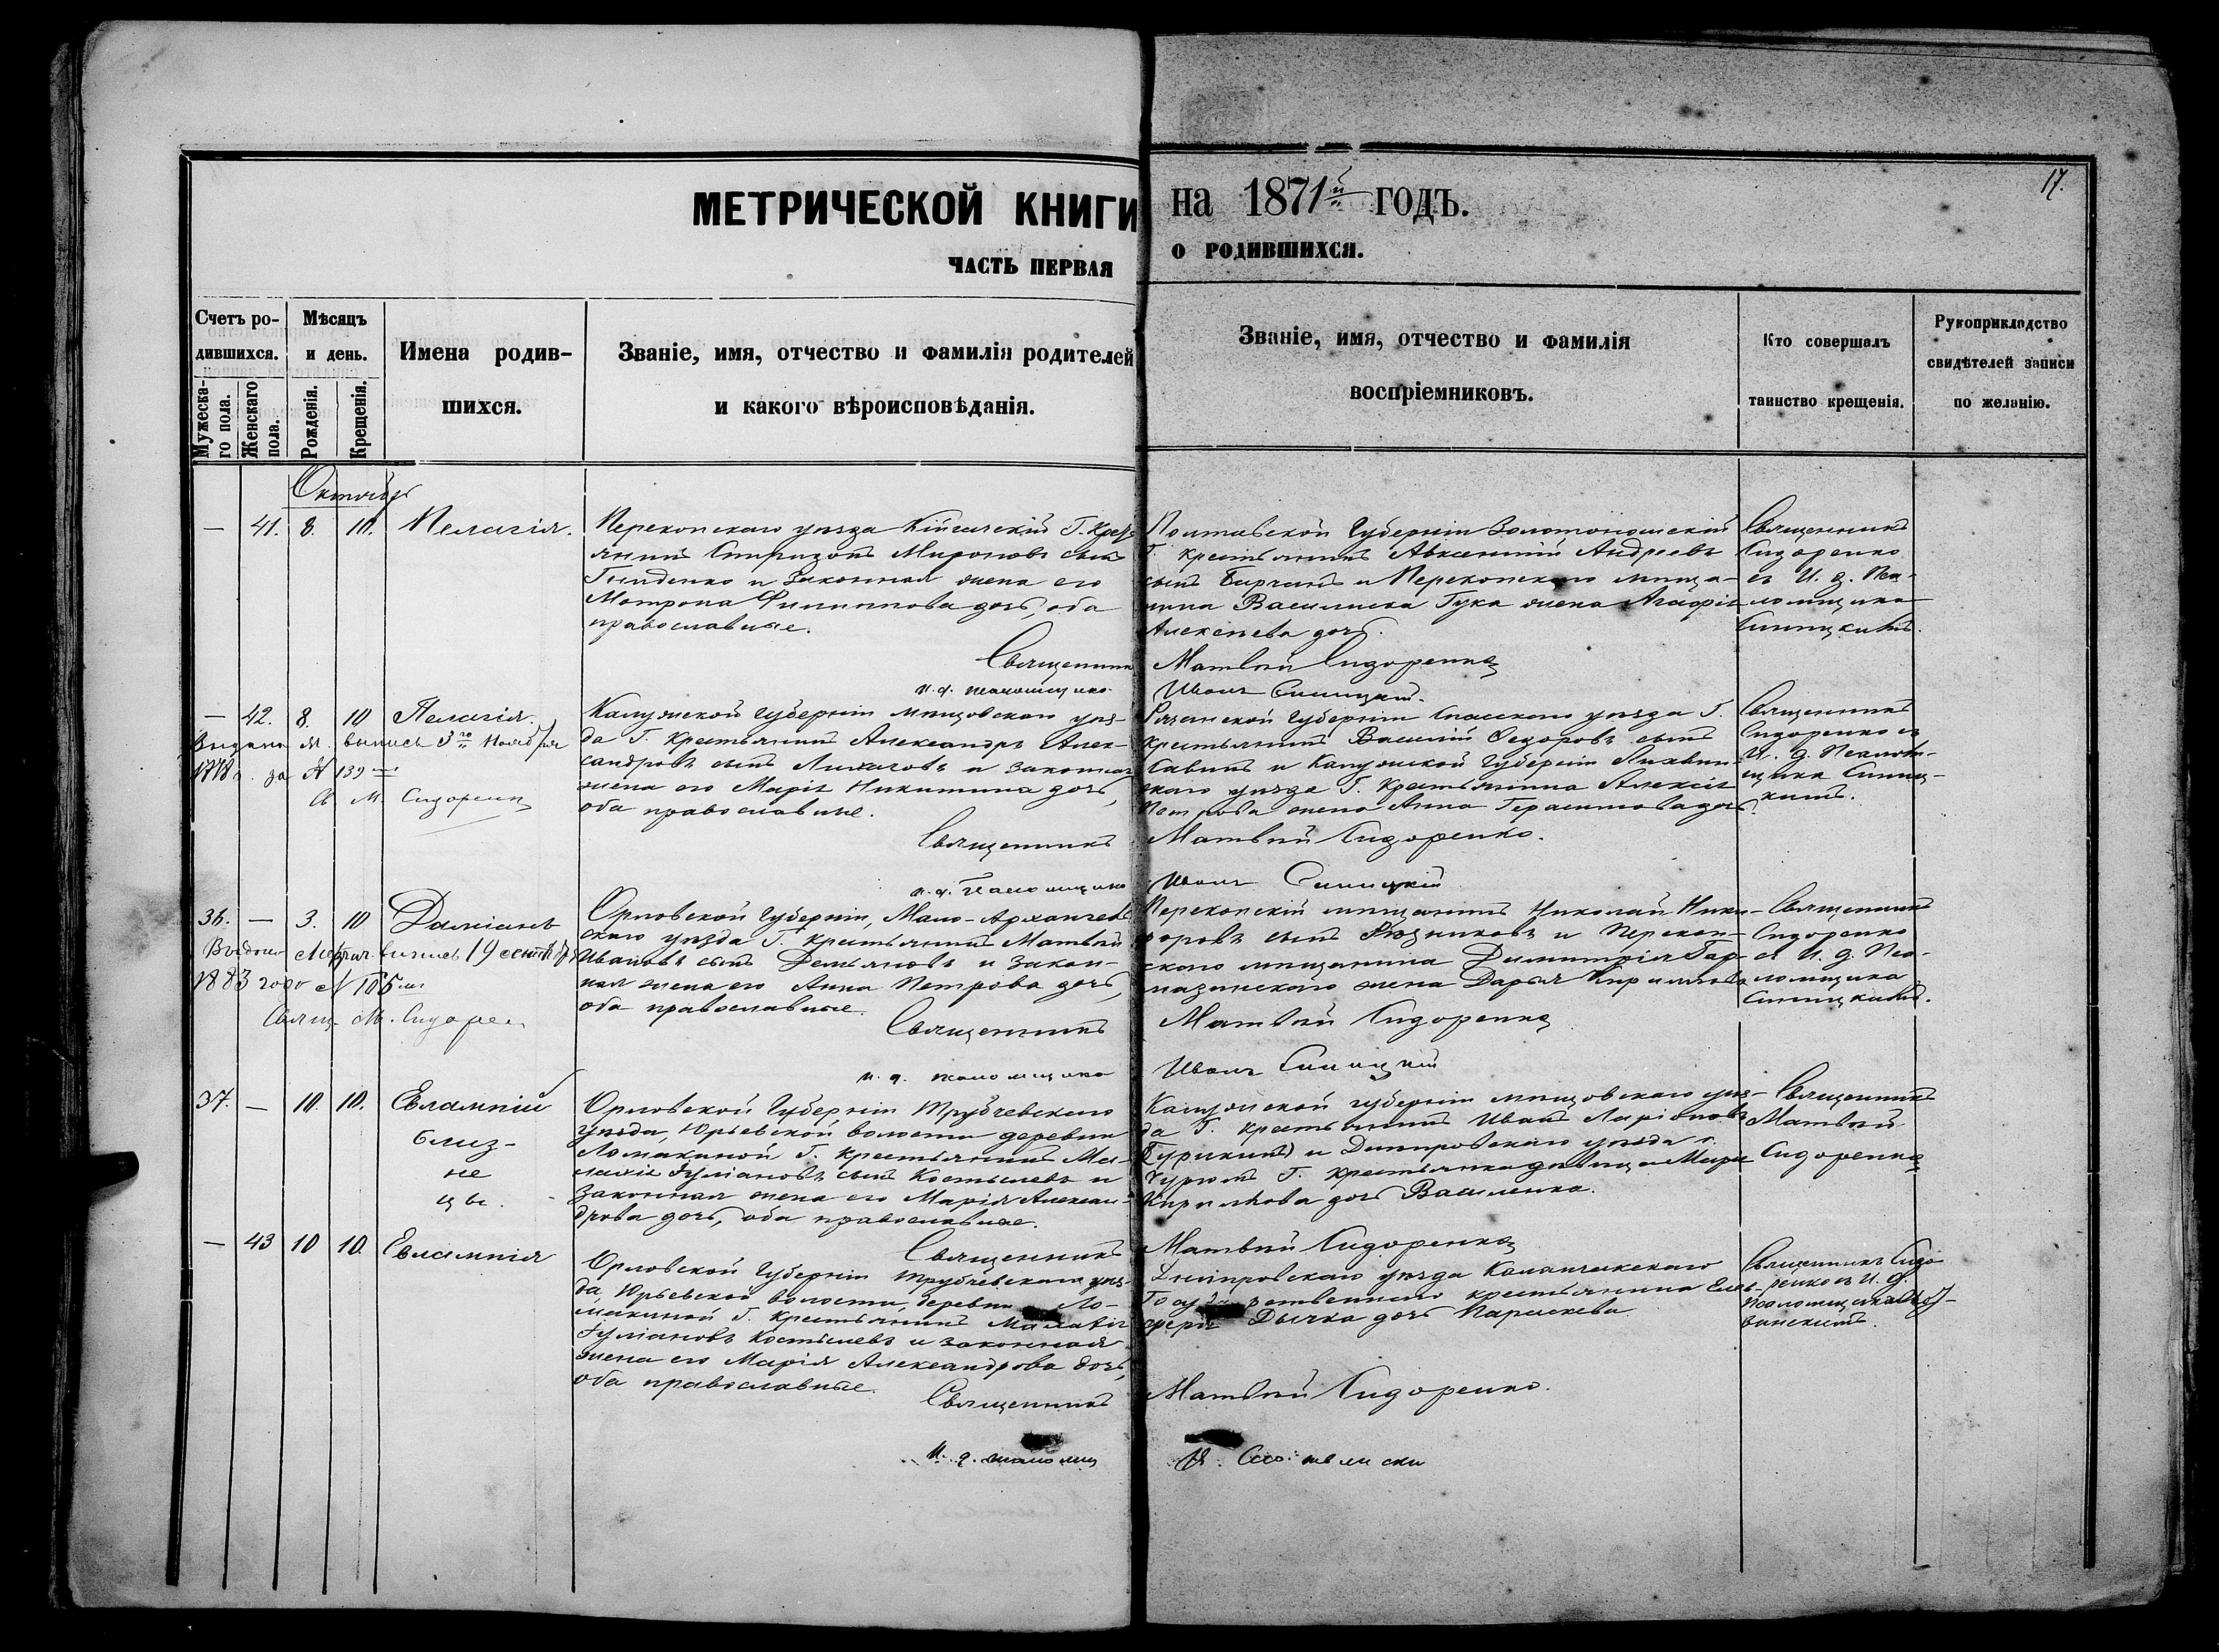 МЕТРИЧЕСКОЙ КНИГИ на 1871й ГОДЪ.
17.
ЧАСТЬ ПЕРВАЯ О РОДИВШИХСЯ.
Счетъ ро-
дившихся.
Мужеска-
го пола.
Женскаго
пола.
Мѣсяцъ
и день.
Рожденія.
Крещенія.
Имена родив-
шихся.
Званіе, имя, отчество и фамилія родителей
и какого вѣроисповѣданія.
Званіе, имя, отчество и фамилія
воспріемниковъ.
Кто совершалъ
таинство крещенія.
Рукоприкладство
свидѣтелей записи
по желанію.
Октябрь
— 41. 8. 10. Пелагія.
Перекопскаго уѣзда Г. Крес-
янинъ Мироновъ сынъ
и Законная жена его
Матрона Филиппова дочь, оба
православные.
Полтавской Губерніи Золотоношскій
Г. крестьянинъ Авксентій Андреевъ
сынъ и Перекопскаго мѣща-
нина Василиска Гука жена Агафія
Алексѣева дочь.
Священникъ
Сидоренко
съ И. д. Пса-
ломщика
Синицкимъ.
Священникъ Матвѣй Сидоренко
и. д. псаломщика Иванъ Синицкій.
— 42. 8. 10 Пелагія.
Выдана м. выпись 3го Ноября
1878 г. за № 139
С. М. Сидоренко
Калужской Губерніи мещовскаго уѣз-
да Г. Крестьянинъ Александръ Алек-
сандровъ сынъ Лихачовъ и законная
жена его Марія Никитина дочь,
оба православные.
Рязанской Губерніи Спасскаго уѣзда Г.
Крестьянинъ Василій Ѳедоровъ сынъ
Савинъ и Калужской Губерніи Лихвин-
скаго уѣзда Г. Крестьянина Алексія
Петрова жена Анна Герасимова дочь.
Священникъ
Сидоренко съ
И. д. Псалом-
щика Синиц-
кимъ.
Священникъ Матвѣй Сидоренко.
и. д. Псаломщика Иванъ Синицкій
36. — 3. 10 Даміанъ
Выдана Метрич. выпись 19 сентября
1883 года № 165
Свящ. М. Сидоренко
Орловской Губерніи, Мало-Архангель-
скаго уѣзда Г. крестьянинъ Матвѣй
Ивановъ сынъ Демьяновъ и закон-
ная жена его Анна Петрова дочь,
оба православные.
Перекопскій мѣщанинъ Николай Ники-
форовъ сынъ Рѣзниковъ и Перекоп-
скаго мѣщанина Димитрія
жена Дарья Кириллова
Священникъ
Сидоренко
съ И. д. Пса-
ломщика
Синицкимъ.
Священникъ Матвѣй Сидоренко
и. д. псаломщика Иванъ Синицкій
37. — 10. 10. Евлампій
близ-
не
цы.
Орловской Губерніи Трубчевскаго
уѣзда, Юрьевской волости деревни
Ломакиной Г. крестьянинъ Ма-
лахія Іуліановъ сынъ Костылевъ и
законная жена его Марія Алексан-
дрова дочь, оба православные.
Калужской губерніи мещовскаго уѣз-
да Г. крестьянинъ Иванъ Ларіоновъ
и Днѣпровскаго уѣзда с.
Г. крестьянка дѣвица Марія
Кириллова дочь Василенко.
Священникъ
Матвѣй
Сидоренко
Священникъ Матвѣй Сидоренко
— 43 10 10. Евлампія
Орловской Губерніи Трубчевскаго уѣз-
да, Юрьевской волости, деревни Ло-
макиной Г. крестьянинъ Малахія
Іуліановъ Костылевъ и законная
жена его Марія Александрова дочь,
оба православные.
Днѣпровскаго уѣзда Каланчакскаго
Государственнаго крестьянина
Дычка дочь Параскева
Священникъ Сидо-
ренко съ И. д.
Псаломщика
Священникъ Матвѣй Сидоренко.
и. д. псаломщ